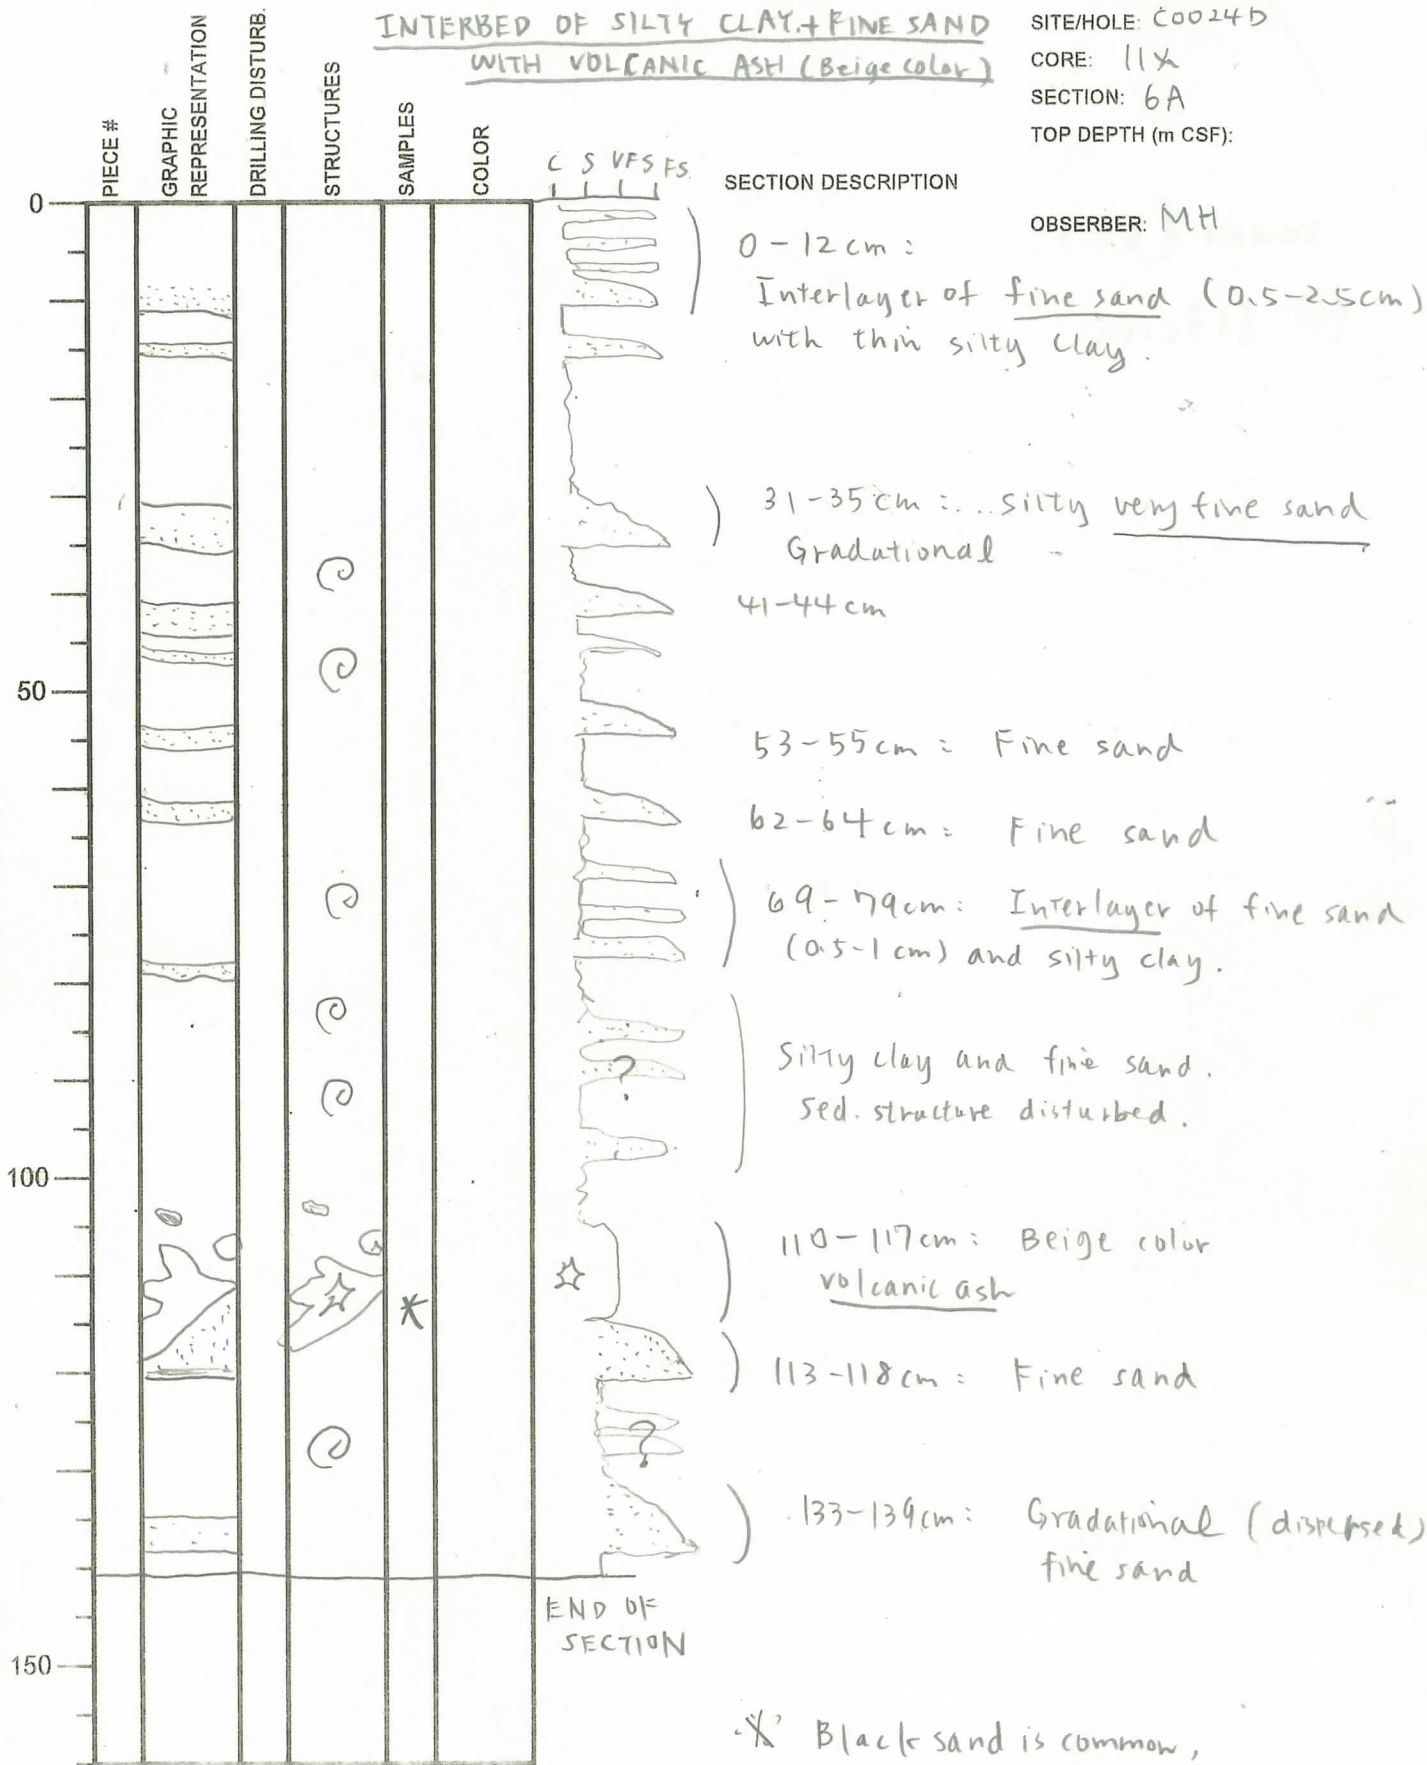 INTERBED OF SILTY CLAY + FINE SAND
WITH VOLCANIC ASH (Beige color)
SITE/HOLE: C0024D
CORE: 11X
SECTION: 6A
TOP DEPTH (m CSF):
OBSERBER: MH
PIECE #
GRAPHIC
REPRESENTATION
DRILLING DISTURB.
STRUCTURES
SAMPLES
COLOR
C S VFS FS
SECTION DESCRIPTION
0
0-12cm:
Interlayer of fine sand (0.5-2.5cm)
with thin silty clay.
31-35cm: ... silty very fine sand
Gradational
41-44cm
50
53-55cm: Fine sand
62-64cm: Fine sand
69-79cm: Interlayer of fine sand
(0.5-1 cm) and silty clay.
?
Silty clay and fine sand.
Sed. structure disturbed.
100
110-117cm: Beige color
volcanic ash
113-118cm: Fine sand
?
133-139cm: Gradational (dispersed)
fine sand
END OF
SECTION
150
Black sand is common,